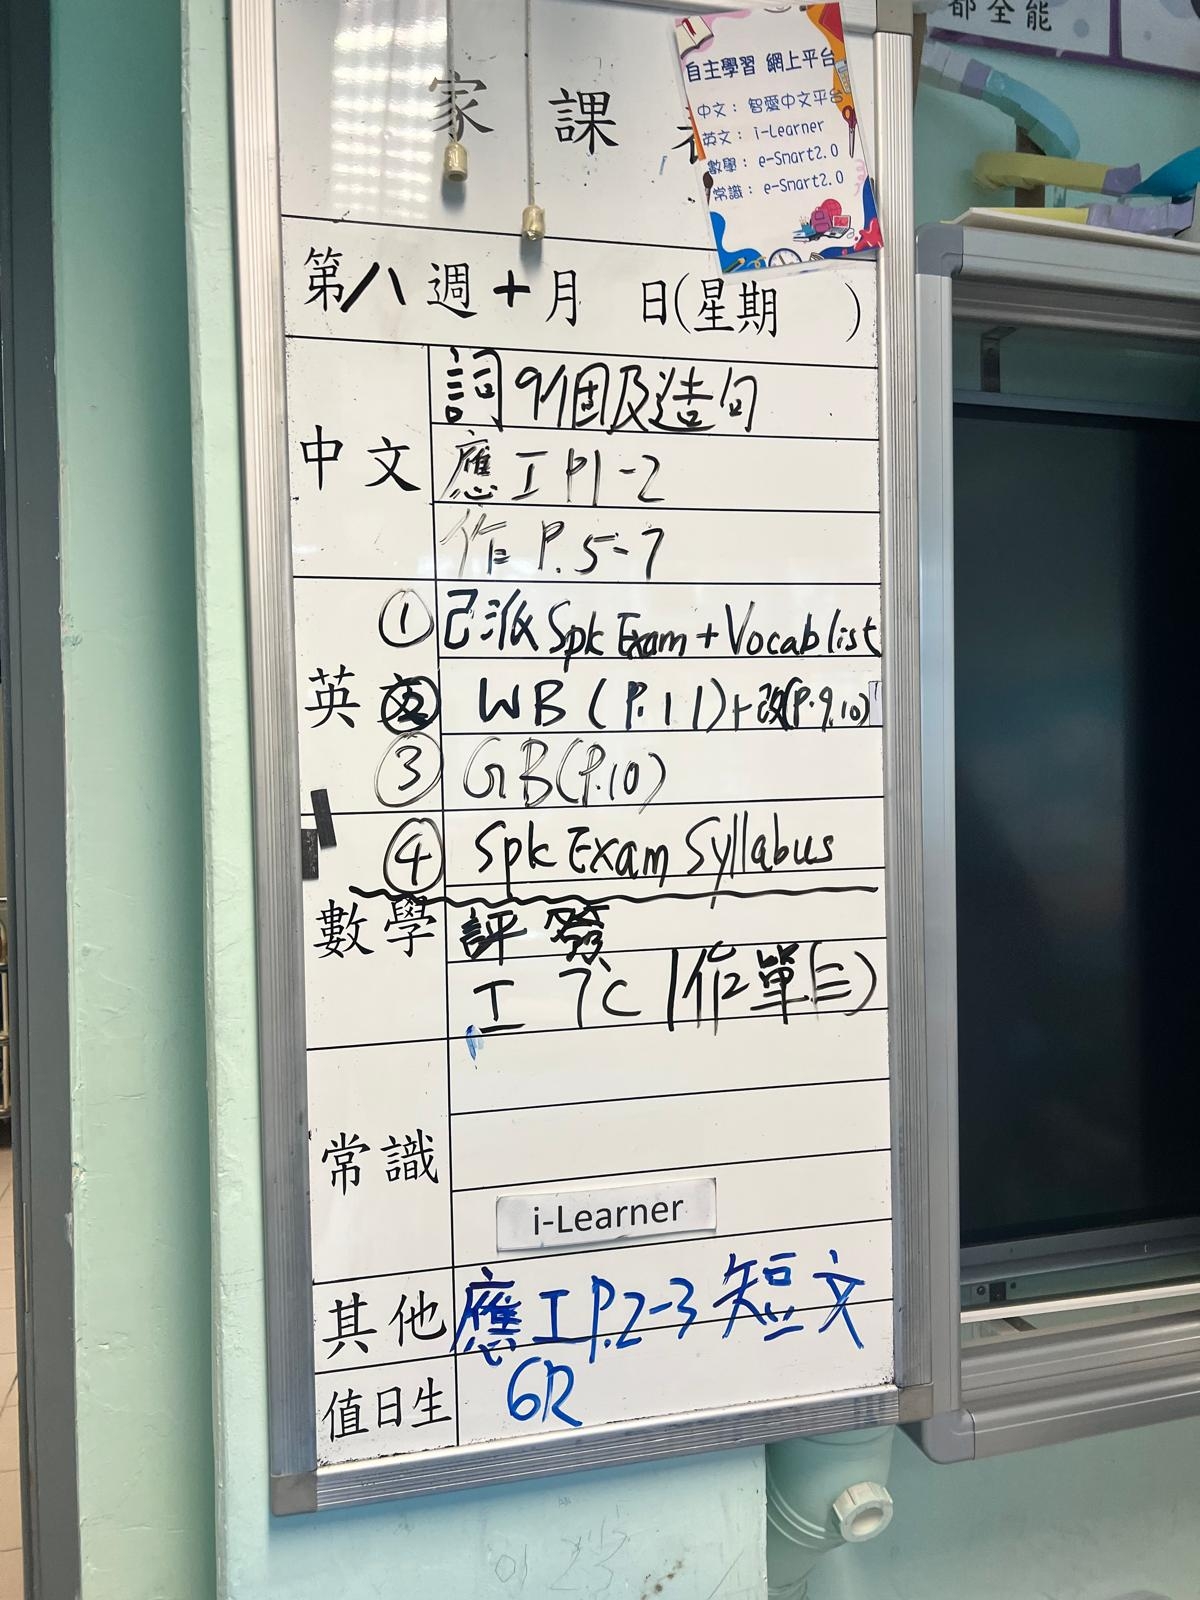 都全能
家課
自主學習 網上平台
中文：智愛中文平台
英文：i-Learner
數學：e-Smart2.0
常識：e-Smart2.0
第八週十月 日(星期 )
中文
詞9個及造句
應工P1-2
作P.5-7
英文
① 已派Spk Exam + Vocab list
② WB (P.11)+改(P.9,10)
③ GB(P.10)
④ Spk Exam Syllabus
數學
評 發
工 7C (作單(三)
常識
i-Learner
其他
應工P.2-3短文
值日生
6R